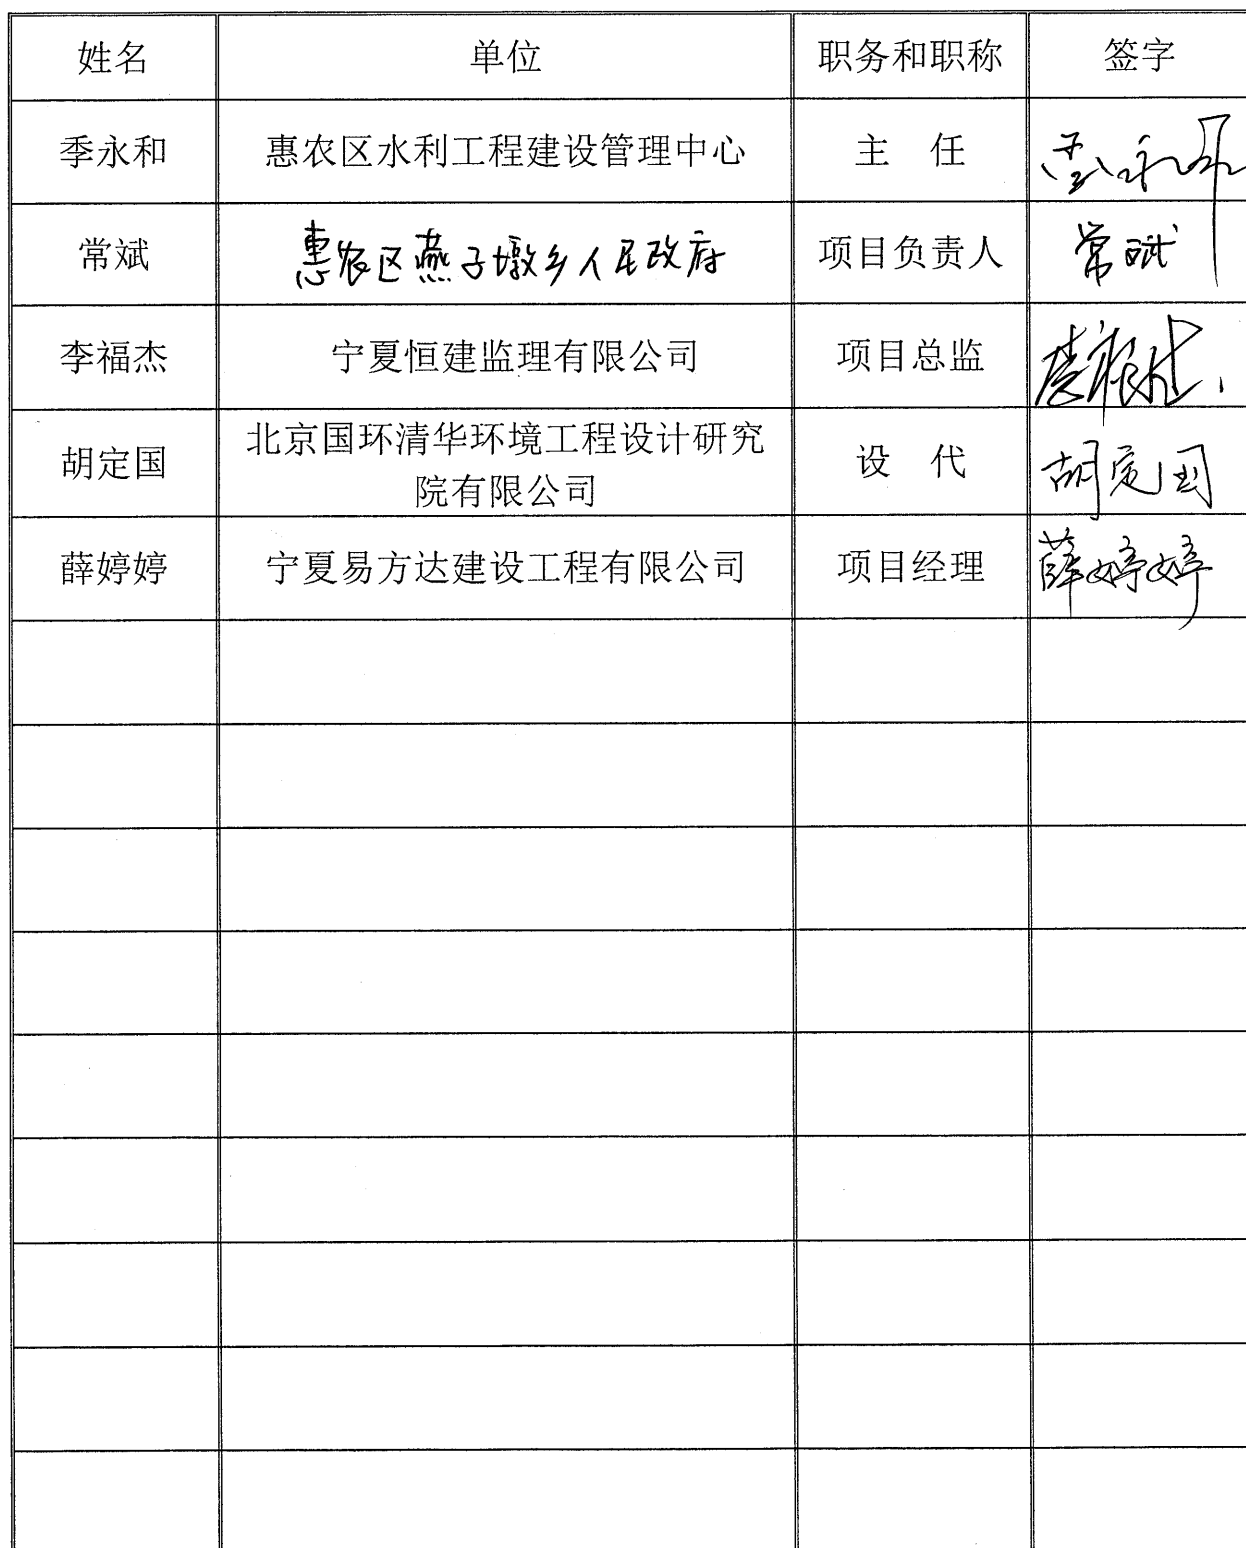 姓名 单位 职务和职称 签字
季永和 惠农区水利工程建设管理中心 主 任 季永和
常斌 惠农区燕子墩乡人民政府 项目负责人 常斌
李福杰 宁夏恒建监理有限公司 项目总监 李福杰
胡定国 北京国环清华环境工程设计研究
院有限公司 设 代 胡定国
薛婷婷 宁夏易方达建设工程有限公司 项目经理 薛婷婷